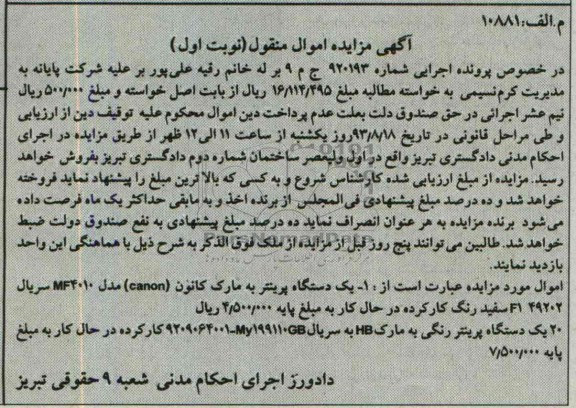 م.الف:۱۰۸۸۱
آگهی مزایده اموال منقول(نوبت اول)
در خصوص پرونده اجرایی شماره ۹۲۰۱۹۳ ج م ۹ بر له خانم رقیه علی‌پور بر علیه شرکت پایانه به
مدیریت کرم‌نسیمی به خواسته مطالبه مبلغ ۱۶/۱۱۴/۴۹۵ ریال از بابت اصل خواسته و مبلغ ۵۰۰/۰۰۰ ریال
نیم عشر اجرائی در حق صندوق دولت بعلت عدم پرداخت دین اموال محکوم علیه توقیف دین از ارزیابی
و طی مراحل قانونی در تاریخ ۹۳/۸/۱۸روز یکشنبه از ساعت ۱۱ الی۱۲ ظهر از طریق مزایده در اجرای
احکام مدنی دادگستری تبریز واقع در اول ولیعصر ساختمان شماره دوم دادگستری تبریز بفروش خواهد
رسید. مزایده از مبلغ ارزیابی شده کارشناس شروع و به کسی که بالاترین مبلغ را پیشنهاد نماید فروخته
خواهد شد و ده درصد مبلغ پیشنهادی فی‌المجلس از برنده اخذ و به مابقی حداکثر یک ماه فرصت داده
می‌شود برنده مزایده به هر عنوان انصراف نماید ده درصد مبلغ پیشنهادی به نفع صندوق دولت ضبط
خواهد شد. طالبین می‌توانند پنج روز قبل از مزایده از ملک فوق الذکر به شرح ذیل با هماهنگی این واحد
بازدید نمایند.
اموال مورد مزایده عبارت است از : ۱- یک دستگاه پرینتر به مارک کانون (canon) مدل MF۴۰۱۰ سریال
F۱ ۴۹۲۰۲ سفید رنگ کارکرده در حال کار به مبلغ پایه ۴/۵۰۰/۰۰۰ ریال
۲۰ یک دستگاه پرینتر رنگی به مارک HB به سریال My۱۹۹۱۱۰GB-۹۲۰۹۰۶۴۰۰۱ کارکرده در حال کار به مبلغ
پایه ۷/۵۰۰/۰۰۰
دادورز اجرای احکام مدنی شعبه ۹ حقوقی تبریز